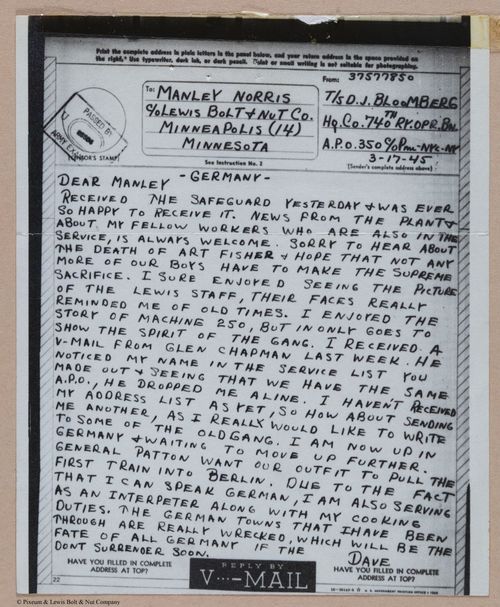 Print the complete address in plain letters in the panel below, and your return address in the space provided on
the right. Use typewriter, dark ink, or dark pencil. Faint or small writing is not suitable for photographing.
To: MANLEY NORRIS
C/O LEWIS BOLT & NUT CO.
MINNEAPOLIS (14)
MINNESOTA
From: 37577850
T/5 D.J. BLOOMBERG
HQ. CO. 740TH RY. OPR. BN.
A.P.O. 350 C/O P/M-NYC-NY
3-17-45
(Sender's complete address above)
PASSED BY
ARMY EXAMINER
(CENSOR'S STAMP)
See Instruction No. 2
-GERMANY-
DEAR MANLEY
RECEIVED THE SAFEGUARD YESTERDAY & WAS EVER
SO HAPPY TO RECEIVE IT. NEWS FROM THE PLANT &
ABOUT MY FELLOW WORKERS WHO ARE ALSO IN THE
SERVICE, IS ALWAYS WELCOME. SORRY TO HEAR ABOUT
THE DEATH OF ART FISHER & HOPE THAT NOT ANY
MORE OF OUR BOYS HAVE TO MAKE THE SUPREME
SACRIFICE. I SURE ENJOYED SEEING THE PICTURE
OF THE LEWIS STAFF, THEIR FACES REALLY
REMINDED ME OF OLD TIMES. I ENJOYED THE
STORY OF MACHINE 250, BUT IN ONLY GOES TO
SHOW THE SPIRIT OF THE GANG. I RECEIVED A
V-MAIL FROM GLEN CHAPMAN LAST WEEK. HE
NOTICED MY NAME IN THE SERVICE LIST YOU
MADE OUT & SEEING THAT WE HAVE THE SAME
A.P.O., HE DROPPED ME ALINE. I HAVEN'T RECEIVED
MY ADDRESS LIST AS YET, SO HOW ABOUT SENDING
ME ANOTHER, AS I REALLY WOULD LIKE TO WRITE
TO SOME OF THE OLD GANG. I AM NOW UP IN
GERMANY & WAITING TO MOVE UP FURTHER.
GENERAL PATTON WANT OUR OUTFIT TO PULL THE
FIRST TRAIN INTO BERLIN. DUE TO THE FACT
THAT I CAN SPEAK GERMAN, I AM ALSO SERVING
AS AN INTERPETER ALONG WITH MY COOKING
DUTIES. THE GERMAN TOWNS THAT I HAVE BEEN
THROUGH ARE REALLY WRECKED, WHICH WILL BE THE
FATE OF ALL GERMANY IF THE
DONT SURRENDER SOON.
DAVE
HAVE YOU FILLED IN COMPLETE
ADDRESS AT TOP?
REPLY BY
V···—MAIL
HAVE YOU FILLED IN COMPLETE
ADDRESS AT TOP?
22
© Pixeum & Lewis Bolt & Nut Company